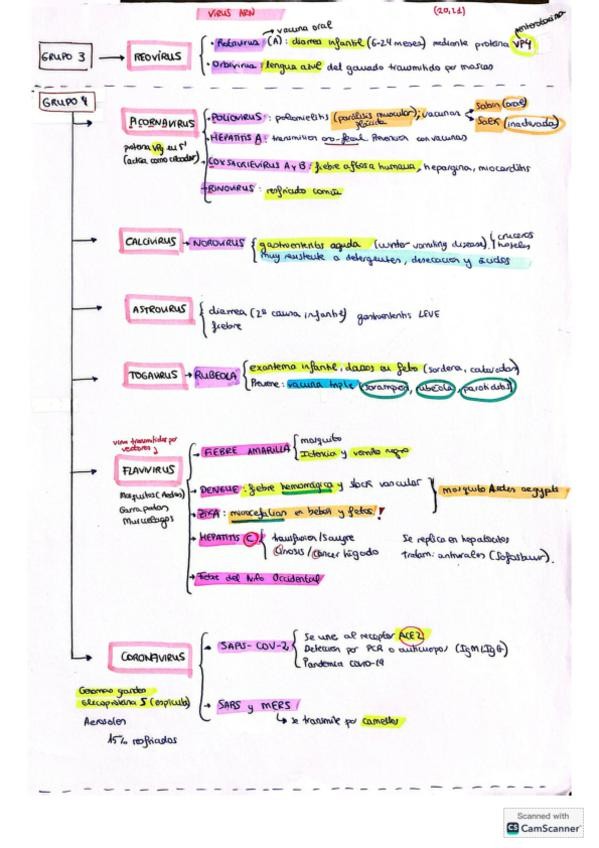 VIRUS ARN
(20,21)
vacuna oral
enterotoxina
GRUPO 3
REOVIRUS
Rotavirus (A): diarrea infantil (6-24 meses) mediante proteína VP4
Orbivirus: lengua azul del ganado transmitido por moscas
GRUPO 4
PICORNAVIRUS
proteína VPg en 5'
(actúa como cebador)
POLIOVIRUS: poliomielitis (parálisis muscular flácida), vacunas
Sabin (oral)
Salk (inactivada)
HEPATITIS A: transmisión oro-fecal. Prevención con vacunas
COXSACKIEVIRUS A y B: fiebre aftosa humana, hepargina, miocarditis
RINOVIRUS: resfriado común
CALCIVIRUS
NOROVIRUS
gastroenteritis aguda (winter vomiting disease)
cruceros
hoteles
muy resistente a detergentes, desecación y ácidos
ASTROVIRUS
diarrea (2ª causa infantil) gastroenteritis LEVE
fiebre
TOGAVIRUS
RUBEOLA
exantema infantil, daños en feto (sordera, cataratas)
Previene: vacuna triple (sarampión, rubéola, parotiditis)
virus transmitidos por
vectores
FLAVIVIRUS
Mosquitos (Aedes)
Garrapatas
Murciélagos
FIEBRE AMARILLA
mosquito
Ictericia y vómito negro
DENGUE: fiebre hemorrágica y shock vascular
mosquito Aedes aegypti
ZIKA: microcefalias en bebés y fetos!
HEPATITIS C
transfusión/sangre
Cirrosis/cáncer hígado
Se replica en hepatocitos
tratam: antivirales (Sofosbuvir).
Fiebre del Nilo Occidental
CORONAVIRUS
Genomas grandes
Glicoproteína S (espícula)
Aerosoles
15% resfriados
SARS-COV-2
Se une al receptor ACE2
Detección por PCR o anticuerpos (IgM, IgG)
Pandemia covid-19
SARS y MERS
se transmite por camellos
Scanned with
CS CamScanner